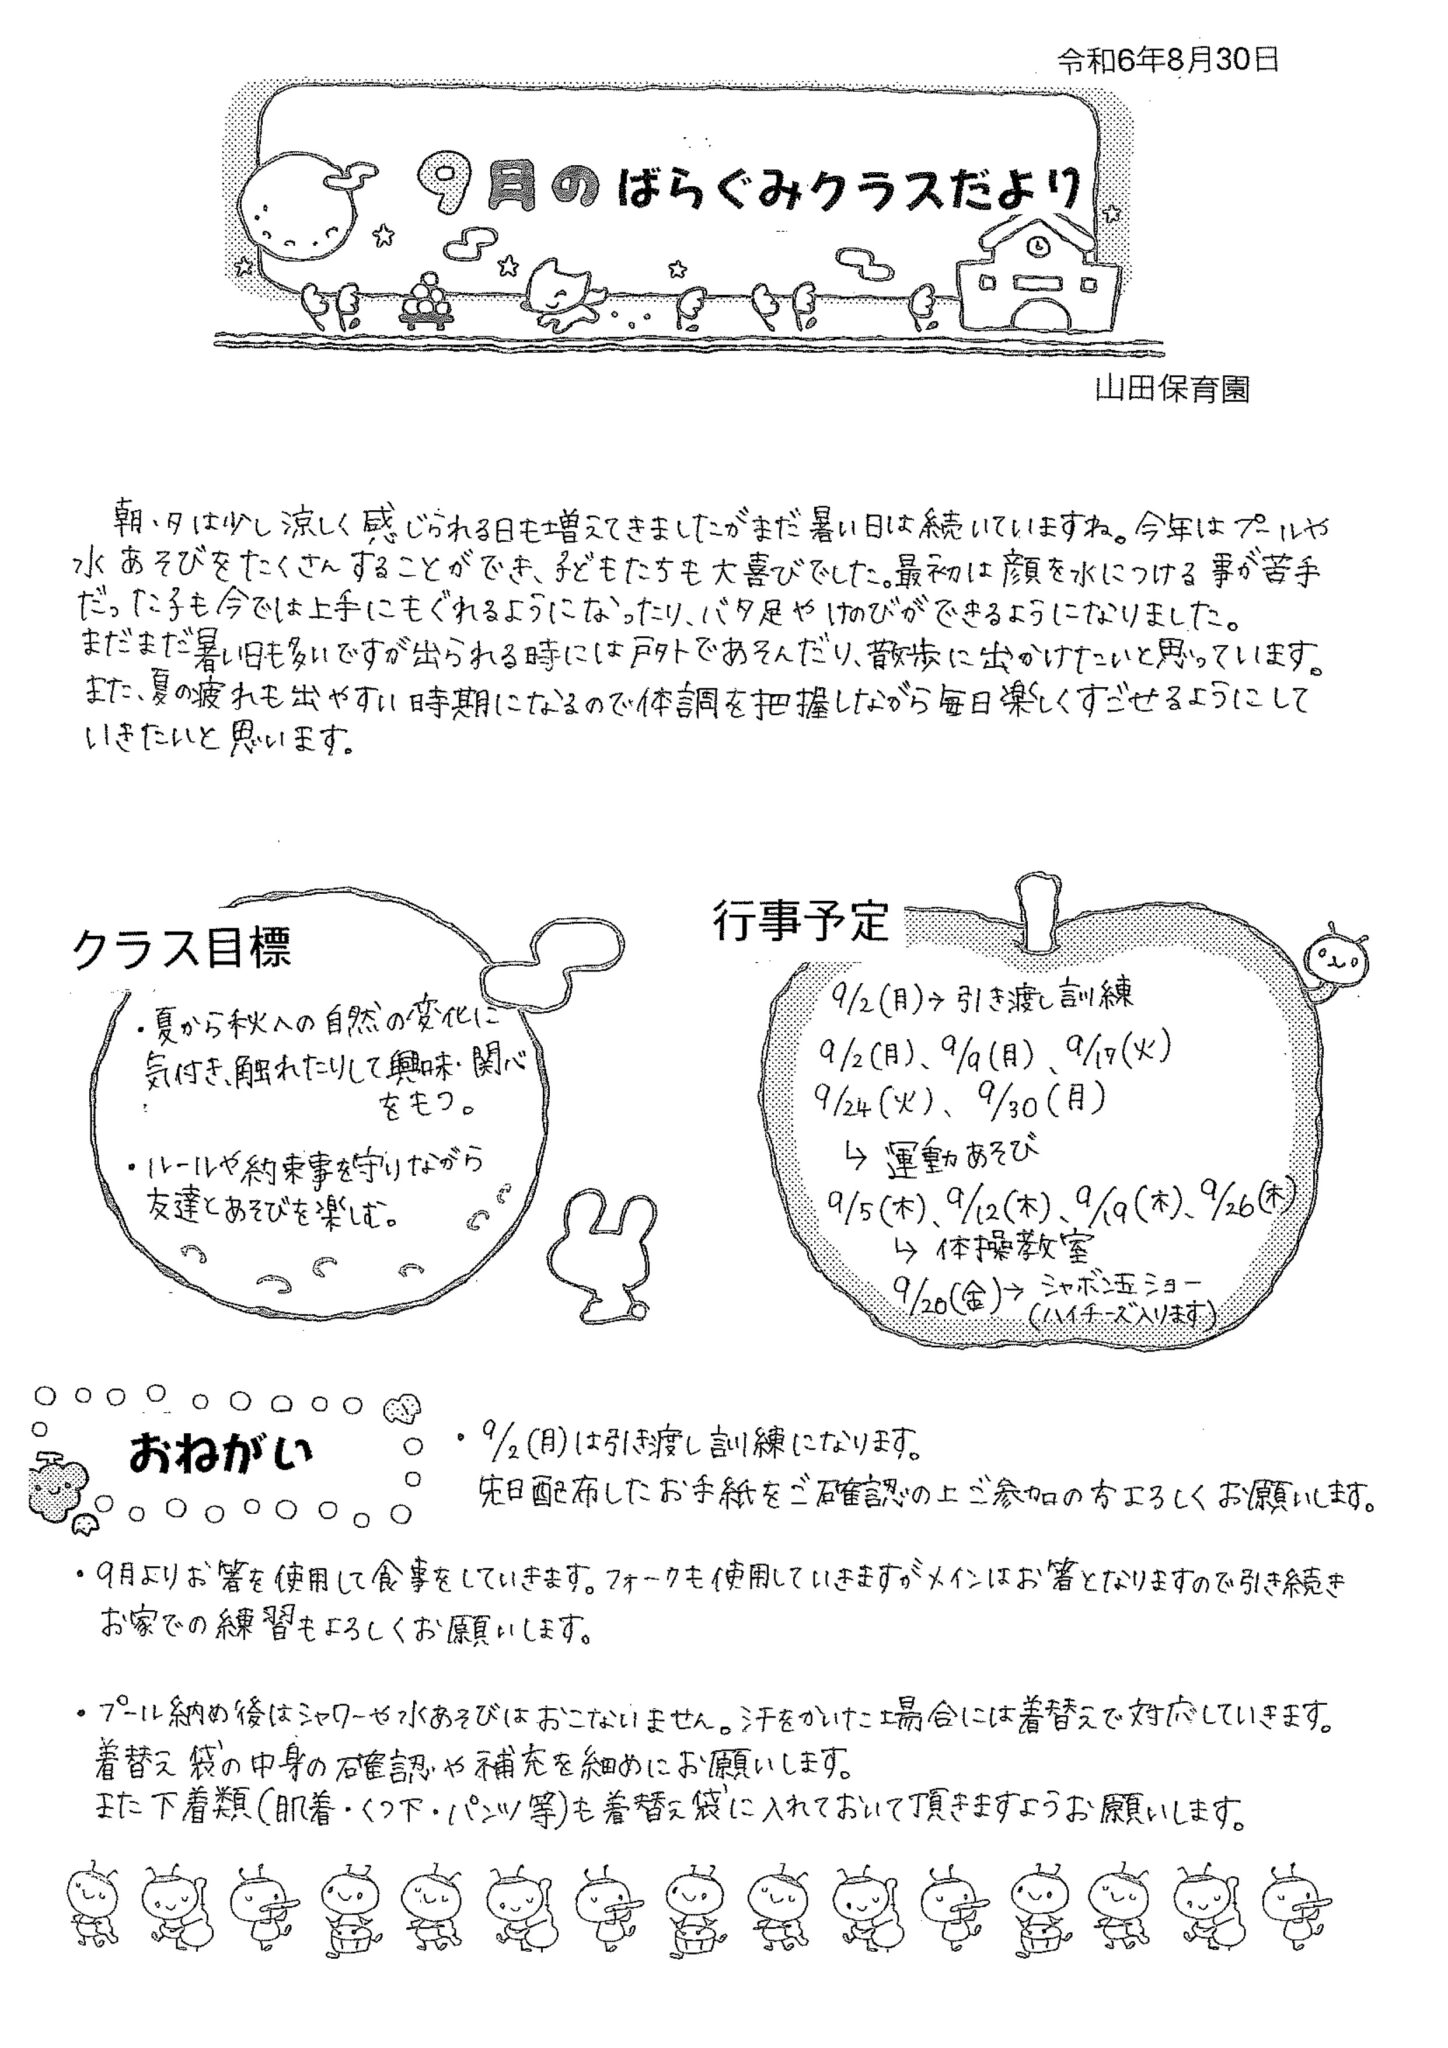 令和6年8月30日
9月のばらぐみクラスだより
山田保育園
朝・夕は少し涼しく感じられる日も増えてきましたがまだ暑い日は続いていますね。今年はプールや
水あそびをたくさんすることができ、子どもたちも大喜びでした。最初は顔を水につける事が苦手
だった子も今では上手にもぐれるようになったり、バタ足やけのびができるようになりました。
まだまだ暑い日も多いですが出られる時には戸外であそんだり、散歩に出かけたいと思っています。
また、夏の疲れも出やすい時期になるので体調を把握しながら毎日楽しくすごせるようにして
いきたいと思います。
クラス目標
・夏から秋への自然の変化に
気付き、触れたりして興味・関心
をもつ。
・ルールや約束事を守りながら
友達とあそびを楽しむ。
行事予定
9/2(月)→引き渡し訓練
9/2(月)、9/9(月)、9/17(火)
9/24(火)、9/30(月)
↳運動あそび
9/5(木)、9/12(木)、9/19(木)、9/26(木)
↳体操教室
9/20(金)→シャボン玉ショー
(ハイチーズ入ります)
おねがい
・9/2(月)は引き渡し訓練になります。
先日配布したお手紙をご確認の上ご参加の方よろしくお願いします。
・9月よりお箸を使用して食事をしていきます。フォークも使用していきますがメインはお箸となりますので引き続き
お家での練習もよろしくお願いします。
・プール納め後はシャワーや水あそびはおこないません。汗をかいた場合には着替えで対応していきます。
着替え袋の中身の確認や補充を細めにお願いします。
また下着類(肌着・くつ下・パンツ等)も着替え袋に入れておいて頂きますようお願いします。